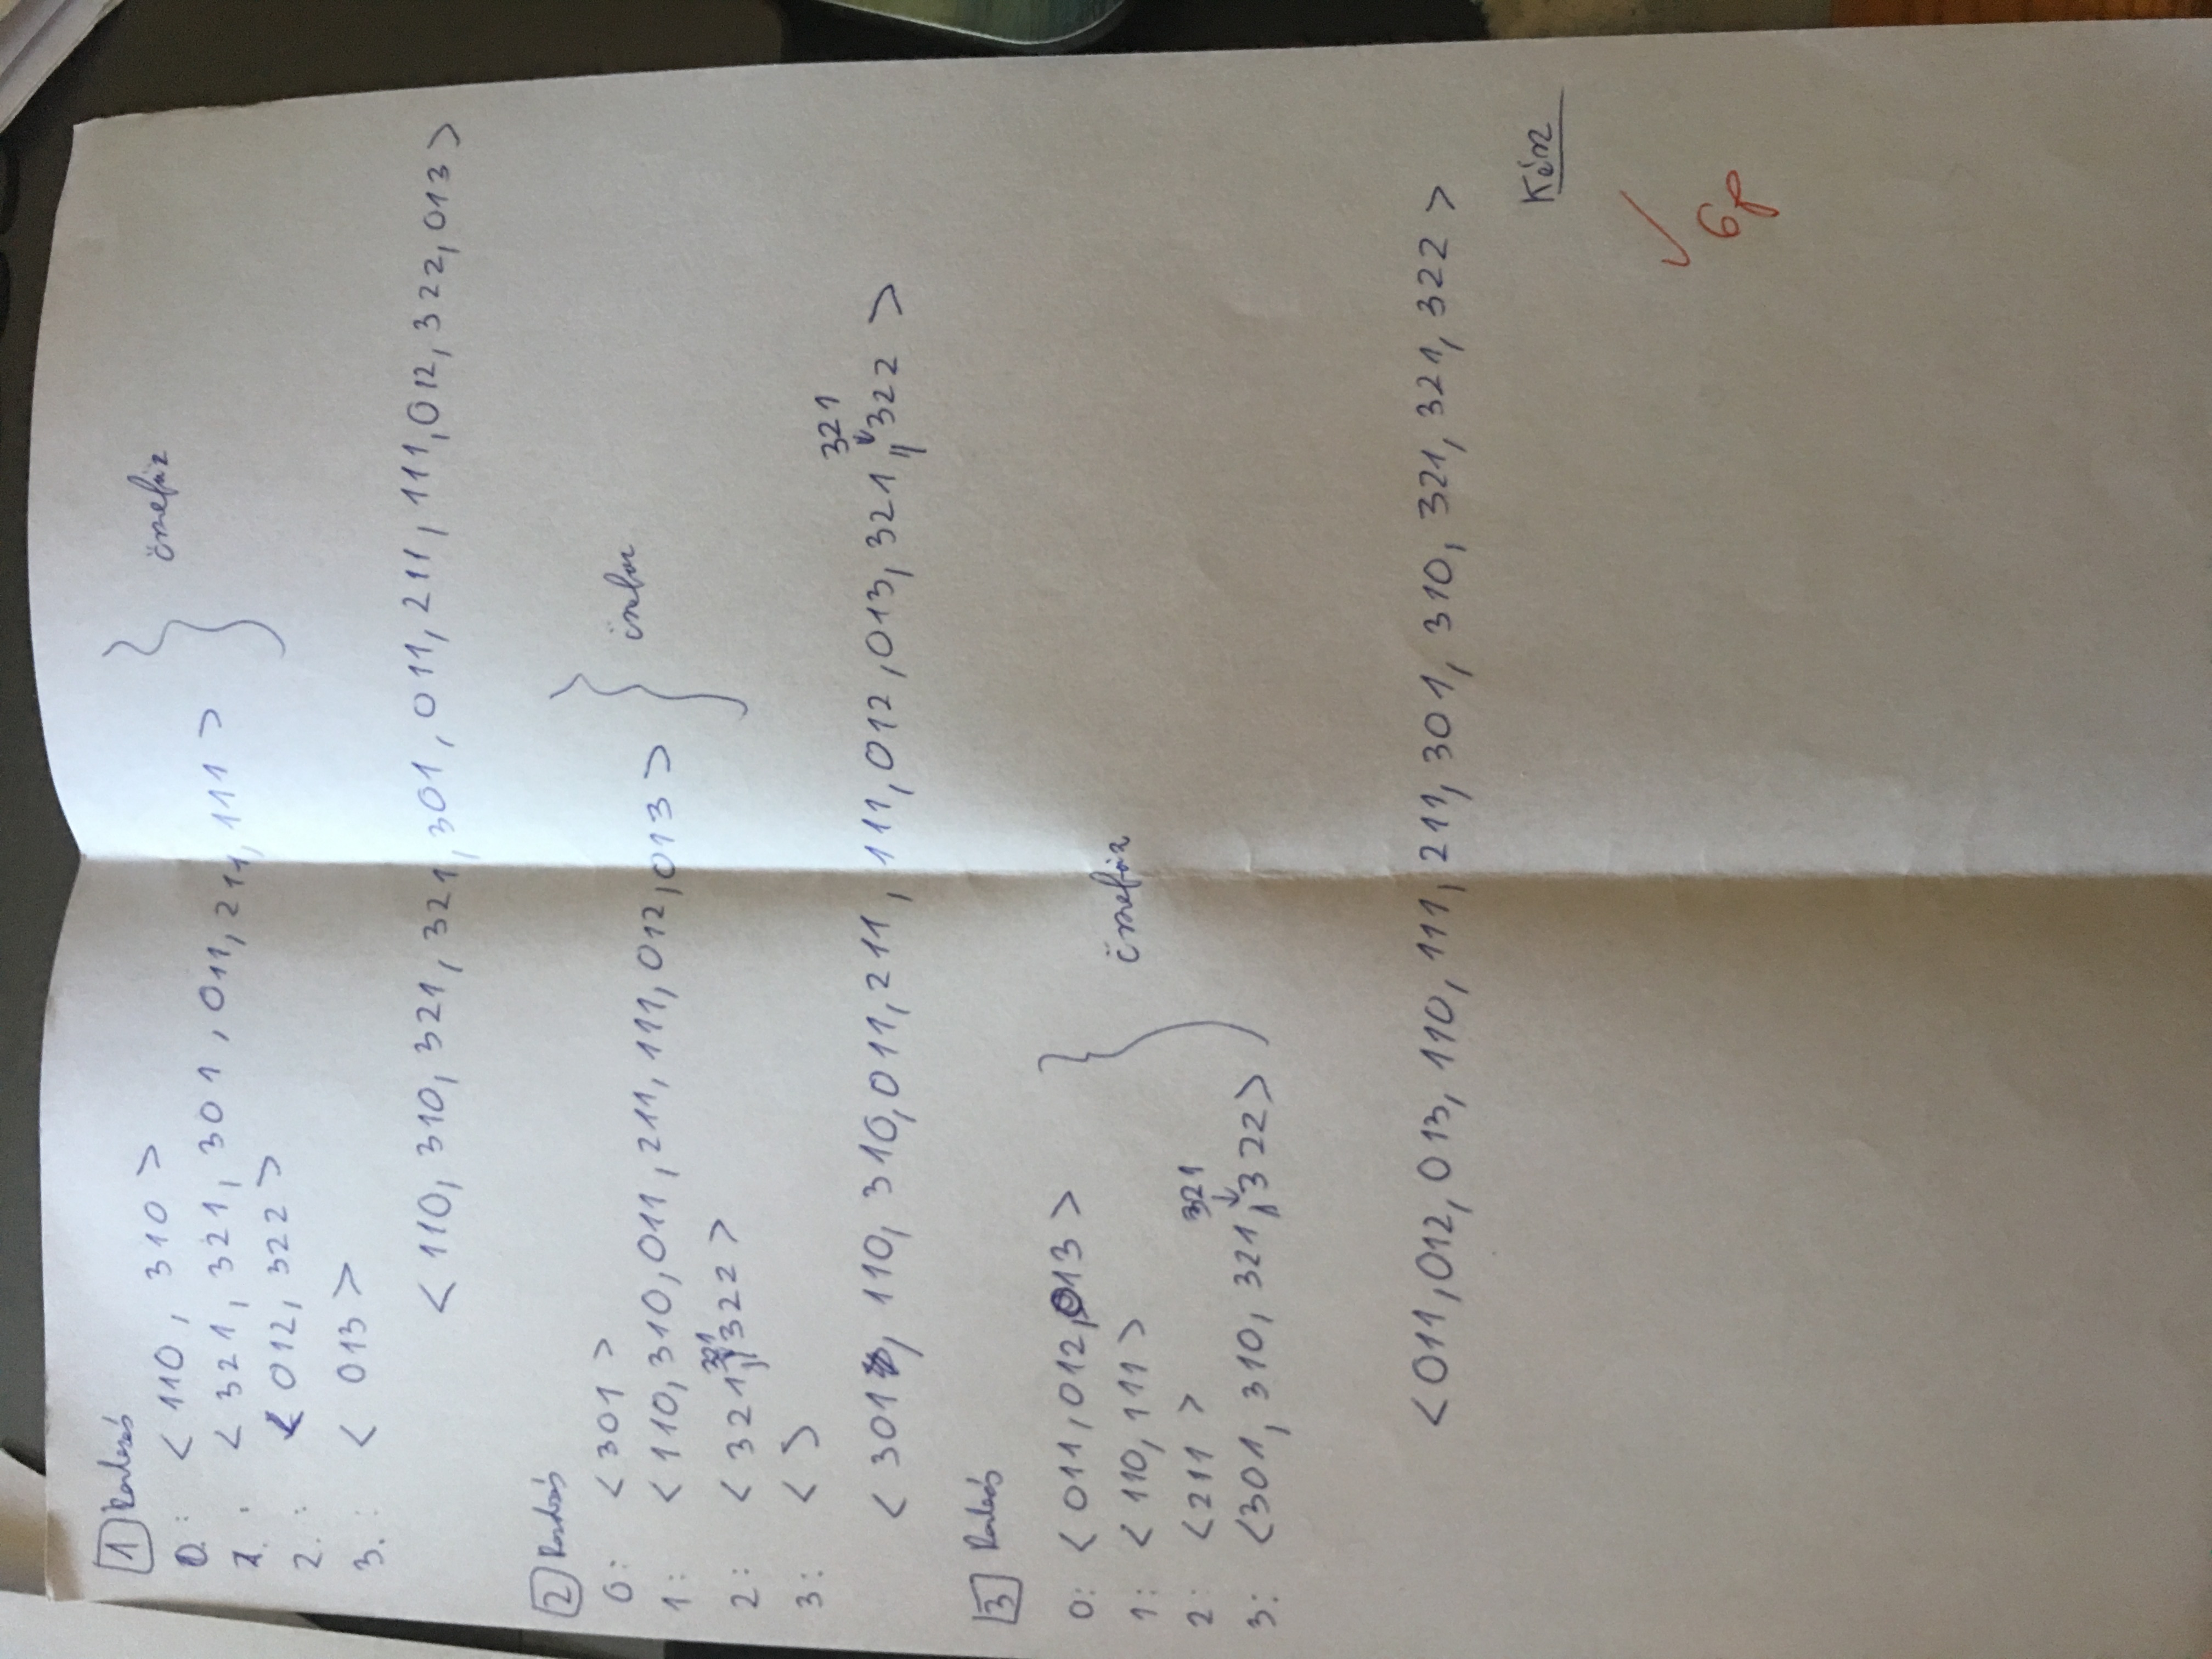 1 Rendezés
0: < 110, 310 >
1. : < 321, 321, 301, 011, 211, 111 >
összefűz
2. : < 012, 322 >
3. : < 013 >
< 110, 310, 321, 321, 301, 011, 211, 111, 012, 322, 013 >
2 Rendezés
0: < 301 >
1: < 110, 310, 011, 211, 111, 012, 013 >
összefűz
2: < 321, 321, 322 >
3: < >
< 301, 110, 310, 011, 211, 111, 012, 013, 321, 321, 322 >
3 Rendezés
0: < 011, 012, 013 >
1: < 110, 111 >
összefűz
2: < 211 >
3: < 301, 310, 321, 321, 322 >
< 011, 012, 013, 110, 111, 211, 301, 310, 321, 321, 322 >
Kész
6p